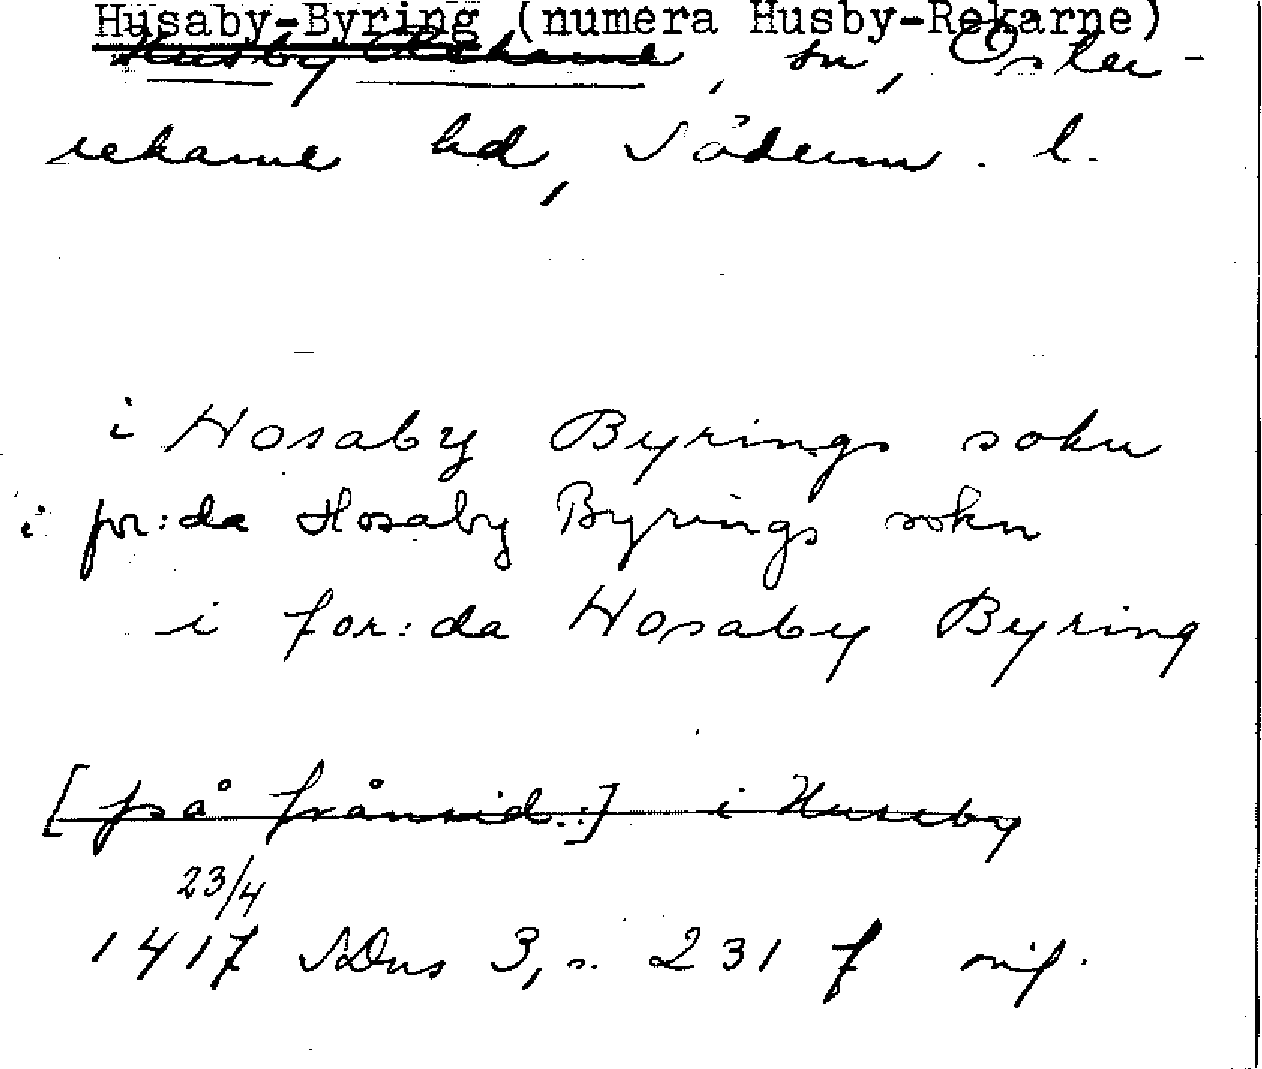 Husaby-Byring (numera Husby-Rekarne)
Husby Rekarne, sn, Öster-
rekarne hd, Söderm. l.
i Hosaby Byrings sokn
i for:da Hosaby Byrings sokn
i for:da Hosaby Byring
[på frånsid.:] i Huseby
23/4
1417 SDns 3, s. 231 f